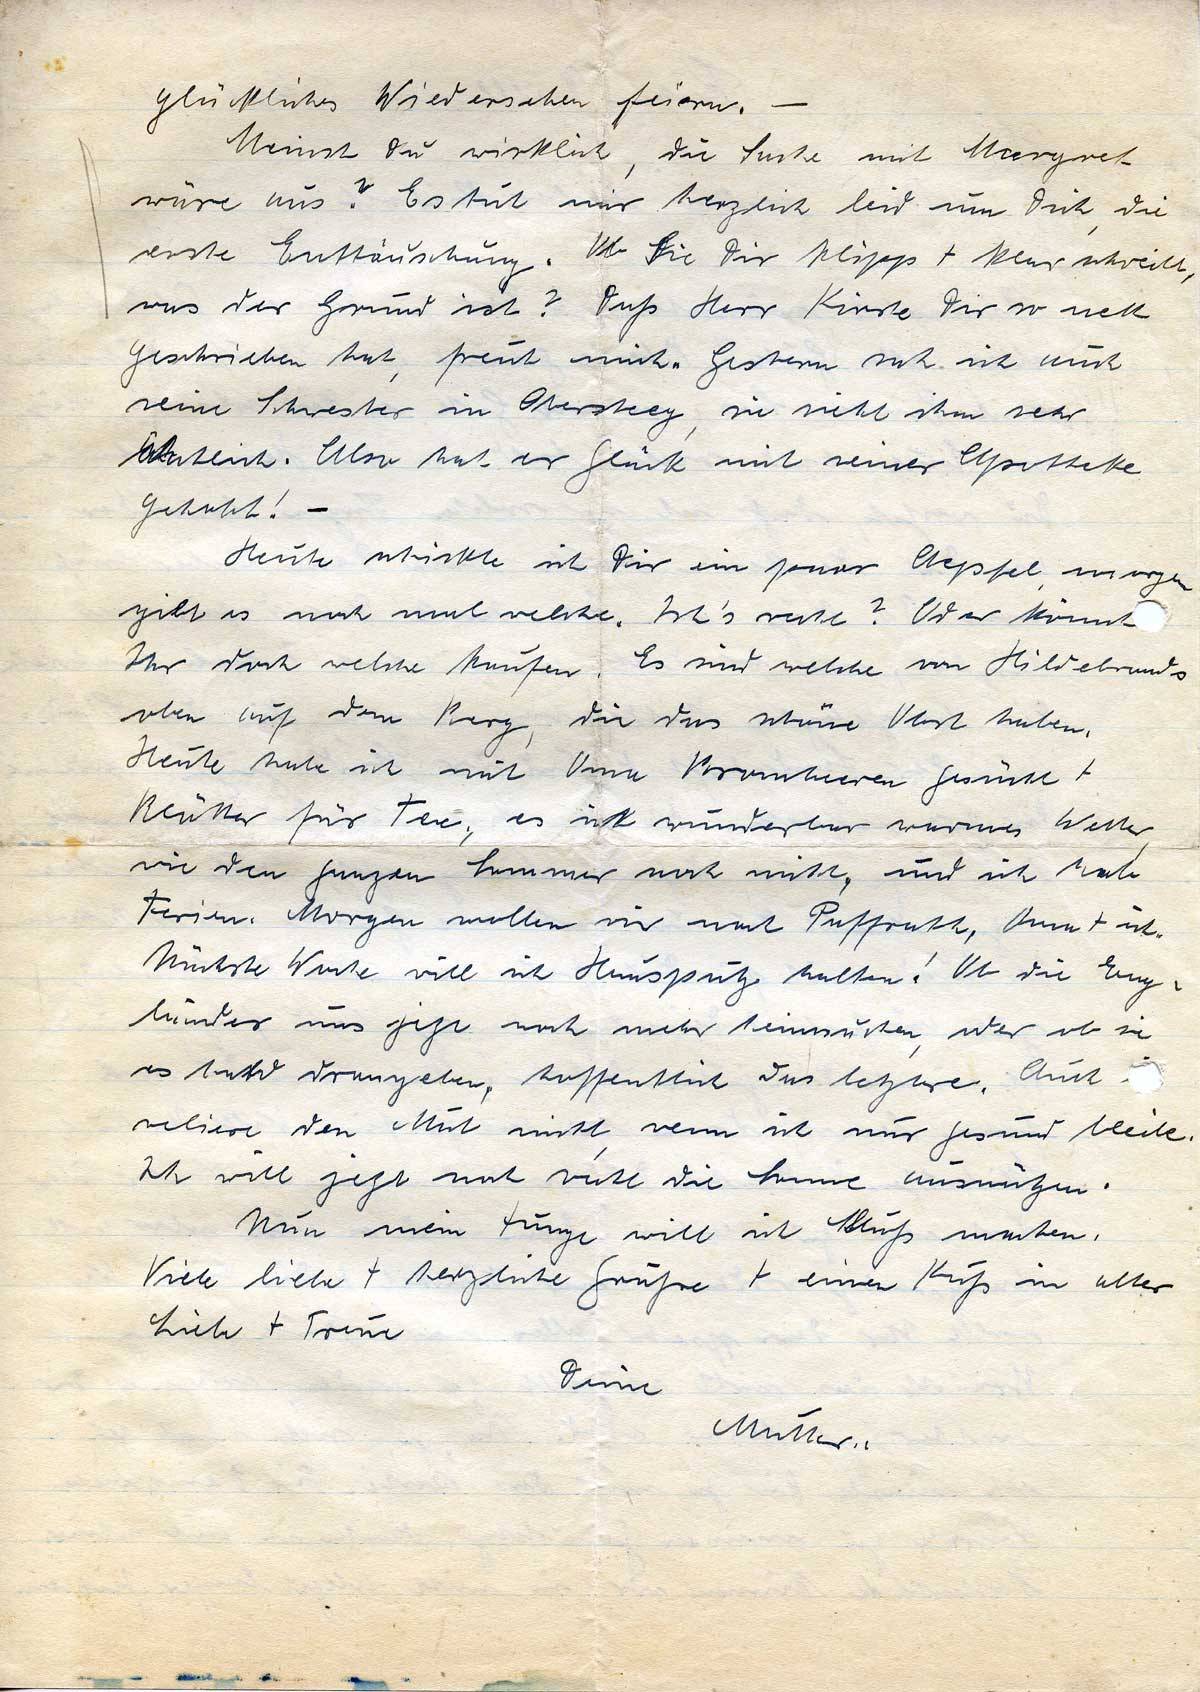 glückliches Wiedersehen feiern. —
Meinst Du wirklich, die Sache mit Margret
wäre aus? Es tut mir herzlich leid um Dich, die
erste Enttäuschung. Ob Sie Dir klipp + klar schreibt,
was der Grund ist? Daß Herr Kirste Dir so nett
geschrieben hat, freut mich. Gestern sah ich auch
seine Schwester in Obersteeg, sie sieht ihm sehr
ähnlich. Also hat er Glück mit seiner Apotheke
gehabt! —
Heute schickte ich Dir ein paar Aepfel, morgen
gibt es noch mal welche. Ist's recht? Oder könnt
Ihr dort welche kaufen. Es sind welche von Hildebrands
oben auf dem Berg, die das schöne Obst haben.
Heute habe ich mit Oma Brombeeren gesucht +
Blätter für Tee, es ist wunderbar warmes Wetter,
wie den ganzen Sommer noch nicht, und ich habe
Ferien. Morgen wollen wir nach Paffrath, Oma + ich.
Nächste Woche will ich Hausputz halten! Ob die Eng-
länder uns jetzt noch mehr heimsuchen, oder ob sie
es bald drangeben, hoffentlich das letztere. Auch
veliere den Mut nicht, wenn ich nur gesund bleibe.
Ich will jetzt noch recht die Sonne ausnützen.
Nun mein Junge will ich Schluß machen.
Viele liebe + herzliche Grüße + einen Kuß in alter
Liebe + Treue
Deine
Mutter.